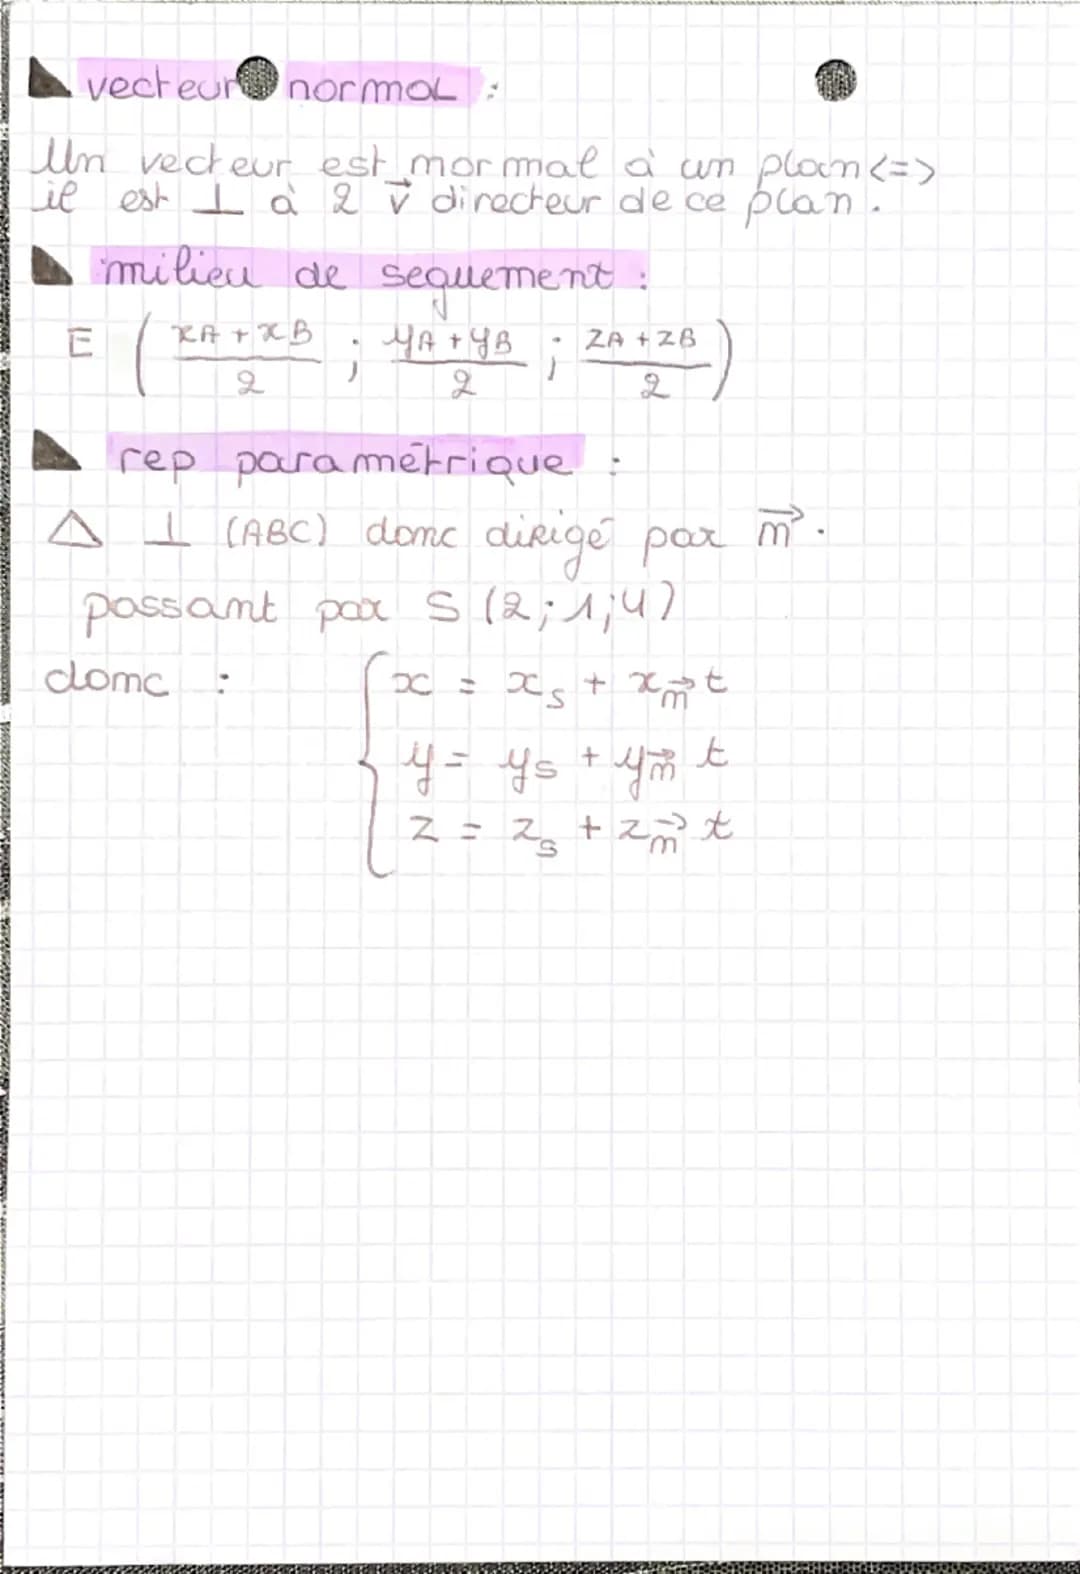 vecteur normal :
Un vecteur est normal à un plan <=>
il est ⊥ à 2 v⃗ directeur de ce plan.
milieu de seguement :
E ( (xA + xB)/2 ; (yA + yB)/2 ; (zA + zB)/2 )
rep paramétrique :
Δ ⊥ (ABC) donc dirigé par n⃗.
passant par S (2 ; 1 ; 4)
donc : { x = xS + xn⃗ t
y = yS + yn⃗ t
z = zS + zn⃗ t